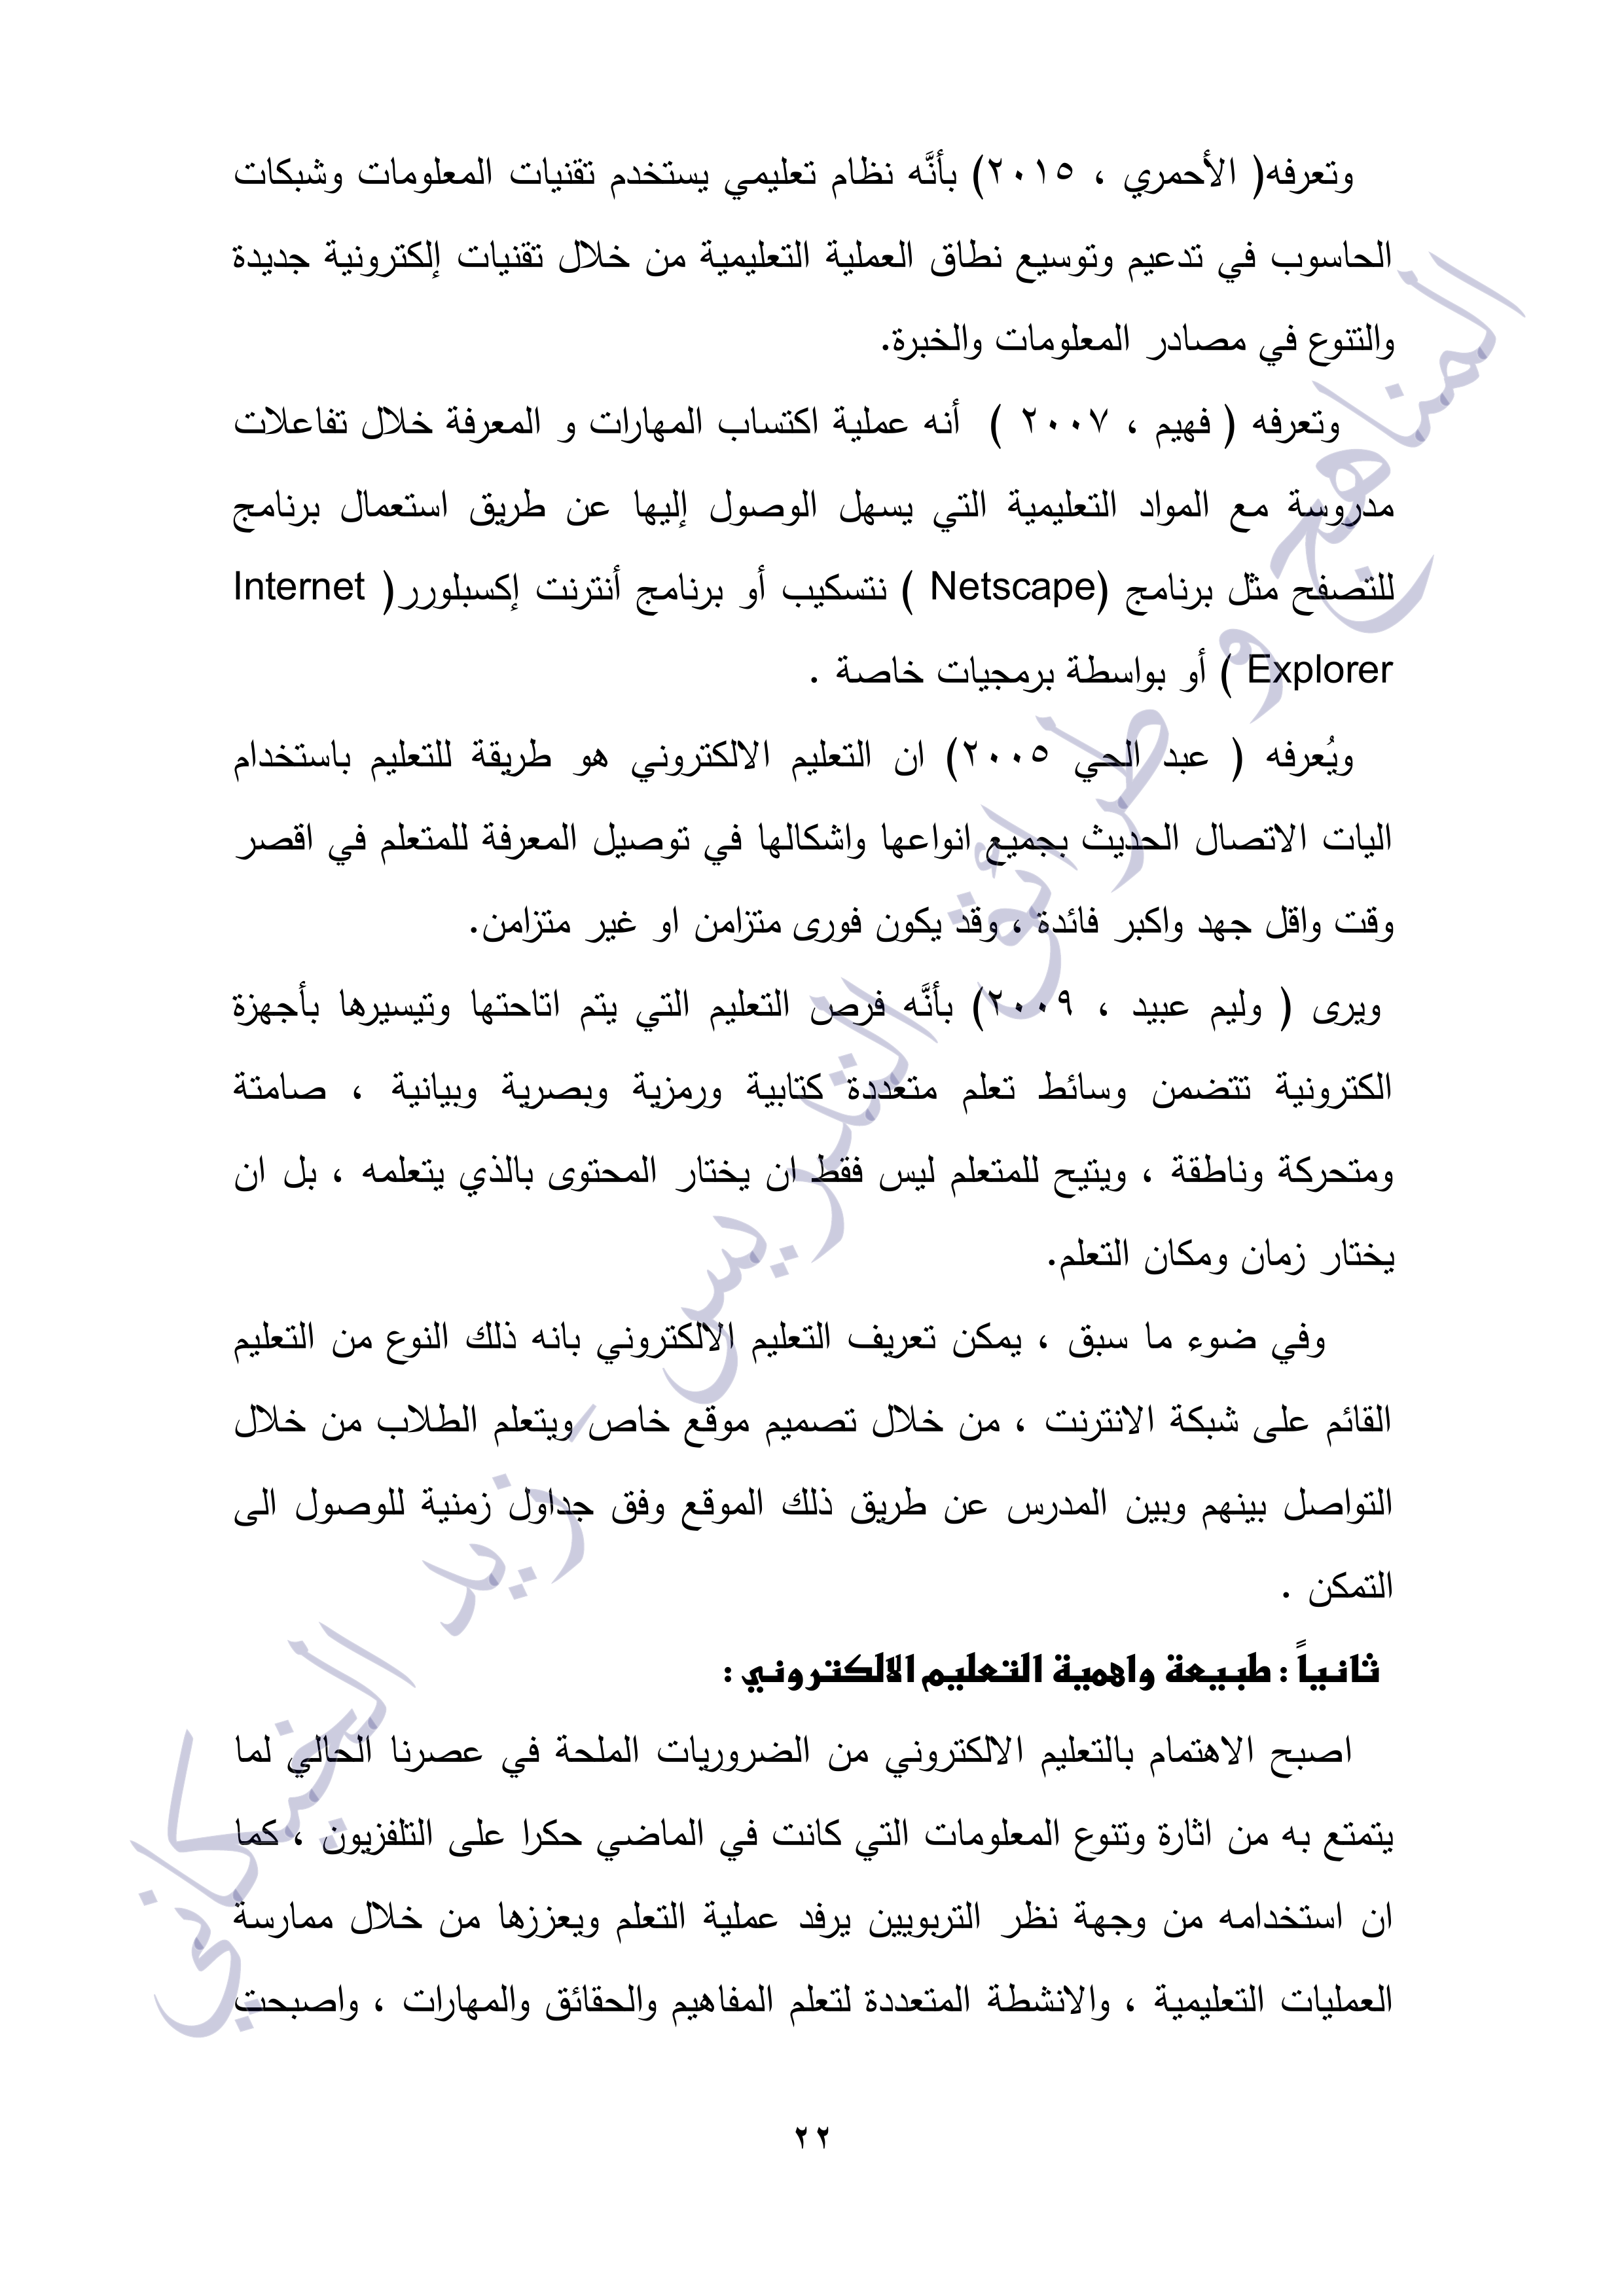 وتعرفه( الأحمري ، ٢٠١٥) بأنَّه نظام تعليمي يستخدم تقنيات المعلومات وشبكات
الحاسوب في تدعيم وتوسيع نطاق العملية التعليمية من خلال تقنيات إلكترونية جديدة
والتنوع في مصادر المعلومات والخبرة.
وتعرفه ( فهيم ، ٢٠٠٧ ) أنه عملية اكتساب المهارات و المعرفة خلال تفاعلات
مدروسة مع المواد التعليمية التي يسهل الوصول إليها عن طريق استعمال برنامج
للتصفح مثل برنامج (Netscape ) نتسكيب أو برنامج أنترنت إكسبلورر( Internet
Explorer ) أو بواسطة برمجيات خاصة .
ويُعرفه ( عبد الحي ٢٠٠٥) ان التعليم الالكتروني هو طريقة للتعليم باستخدام
اليات الاتصال الحديث بجميع انواعها واشكالها في توصيل المعرفة للمتعلم في اقصر
وقت واقل جهد واكبر فائدة ، وقد يكون فورى متزامن او غير متزامن.
ويرى ( وليم عبيد ، ٢٠٠٩) بأنَّه فرص التعليم التي يتم اتاحتها وتيسيرها بأجهزة
الكترونية تتضمن وسائط تعلم متعددة كتابية ورمزية وبصرية وبيانية ، صامتة
ومتحركة وناطقة ، ويتيح للمتعلم ليس فقط ان يختار المحتوى بالذي يتعلمه ، بل ان
يختار زمان ومكان التعلم.
وفي ضوء ما سبق ، يمكن تعريف التعليم الالكتروني بانه ذلك النوع من التعليم
القائم على شبكة الانترنت ، من خلال تصميم موقع خاص ويتعلم الطلاب من خلال
التواصل بينهم وبين المدرس عن طريق ذلك الموقع وفق جداول زمنية للوصول الى
التمكن .
ثانياً : طبيعة واهمية التعليم الالكتروني :
اصبح الاهتمام بالتعليم الالكتروني من الضروريات الملحة في عصرنا الحالي لما
يتمتع به من اثارة وتنوع المعلومات التي كانت في الماضي حكرا على التلفزيون ، كما
ان استخدامه من وجهة نظر التربويين يرفد عملية التعلم ويعززها من خلال ممارسة
العمليات التعليمية ، والانشطة المتعددة لتعلم المفاهيم والحقائق والمهارات ، واصبحت
٢٢
المناهج و طرائق التدريس - زيد الخيكاني